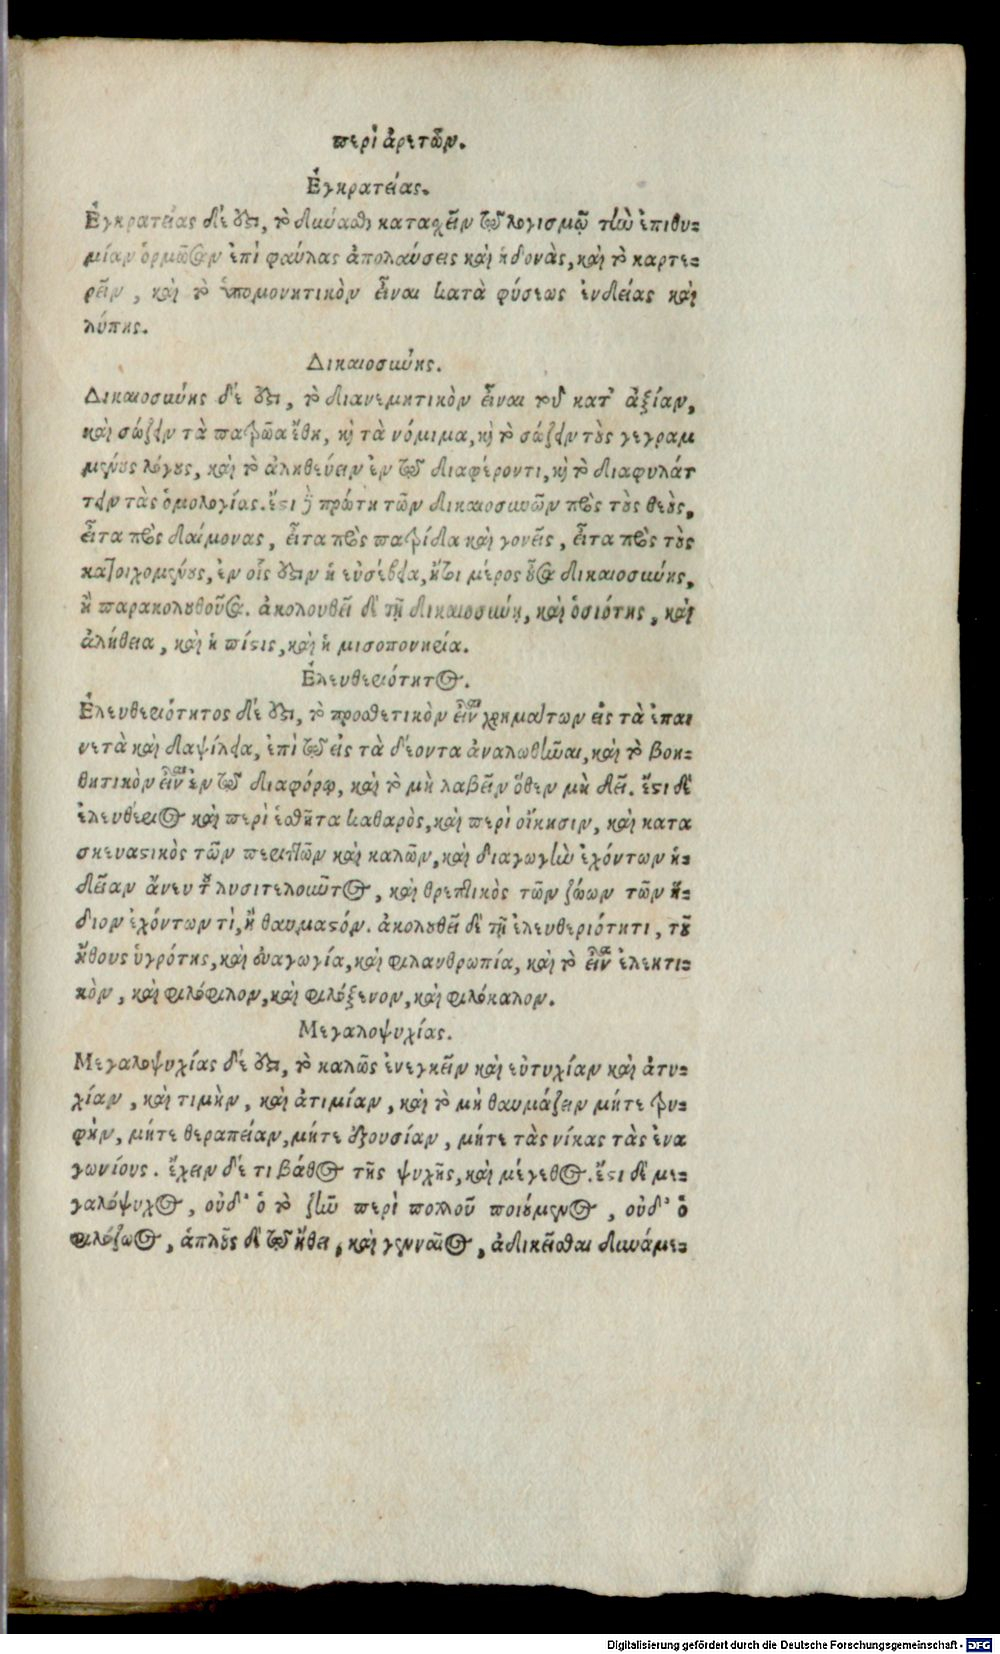 περὶ ἀρετῶν.
Ἐγκρατείας.
Ἐγκρατείας δέ ὅτι, τὸ δύναϑαι καταχεῖν τῷ λογισμῷ τὴν ἐπιθυ-
μίαν ὁρμῶσαν ἐπὶ φαύλας ἀπολαύσεις καὶ ἡδονὰς, καὶ τὸ καρτε-
ρεῖν, καὶ τὸ ὑπομονητικὸν εἶναι κατὰ φύσεως ἐνδείας καὶ
λύπης.
Δικαιοσύνης.
Δικαιοσύνης δέ ὅτι, τὸ διανεμητικὸν εἶναι τοῦ κατ' ἀξίαν,
καὶ σώζειν τὰ πατρῶα ἔθη, καὶ τὰ νόμιμα, καὶ τὸ σώζειν τοὺς γεγραμ
μένους λόγους, καὶ τὸ ἀληθεύειν ἐν τῷ διαφέροντι, καὶ τὸ διαφυλάτ
τειν τὰς ὁμολογίας. ἔστι δὲ πρώτη τῶν δικαιοσυνῶν πρὸς τοὺς θεοὺς,
εἶτα πρὸς δαίμονας, εἶτα πρὸς πατρίδα καὶ γονεῖς, εἶτα πρὸς τοὺς
κατοιχομένους, ἐν οἷς ὅτιν ἡ εὐσέβεια, ἤτοι μέρος οὖσα δικαιοσύνης,
ἢ παρακολουθοῦσα. ἀκολουθεῖ δὲ τῇ δικαιοσύνῃ, καὶ ὁσιότης, καὶ
ἀλήθεια, καὶ ἡ πίστις, καὶ ἡ μισοπονηρία.
Ἐλευθεριότητος.
Ἐλευθεριότητος δέ ὅτι, τὸ προθετικὸν εἶναι χρημάτων εἰς τὰ ἐπαι
νετὰ καὶ δαψίλεια, ἐπὶ τῷ εἰς τὰ δέοντα ἀναλωθῆναι, καὶ τὸ βοη-
θητικὸν εἶναι ἐν τῷ διαφόρῳ, καὶ τὸ μὴ λαβεῖν ὅθεν μὴ δεῖ. ἔστι δὲ
ἐλευθέριος καὶ περὶ ἐσθῆτα καθαρὸς, καὶ περὶ οἴκησιν, καὶ κατα
σκευαστικὸς τῶν περιττῶν καὶ καλῶν, καὶ διαγωγὴν ἐχόντων ἡ-
δεῖαν ἄνευ τοῦ λυσιτελοῦντος, καὶ θρεπτικὸς τῶν ζώων τῶν ἴ-
διον ἐχόντων τὶ, ἢ θαυμαστόν. ἀκολουθεῖ δὲ τῇ ἐλευθεριότητι, τοῦ
ἤθους ὑγρότης, καὶ εὐαγωγία, καὶ φιλανθρωπία, καὶ τὸ εἶναι ἐλεητι-
κὸν, καὶ φιλόφιλον, καὶ φιλόξενον, καὶ φιλόκαλον.
Μεγαλοψυχίας.
Μεγαλοψυχίας δέ ὅτι, τὸ καλῶς ἐνεγκεῖν καὶ εὐτυχίαν καὶ ἀτυ-
χίαν, καὶ τιμὴν, καὶ ἀτιμίαν, καὶ τὸ μὴ θαυμάζειν μήτε τρυ-
φὴν, μήτε θεραπείαν, μήτε ἐξουσίαν, μήτε τὰς νίκας τὰς ἐνα
γωνίους. ἔχειν δέ τι βάθος τῆς ψυχῆς, καὶ μέγεθος. ἔστι δὲ με-
γαλόψυχος, οὐδ' ὁ τὸ ζῆν περὶ πολλοῦ ποιούμενος, οὐδ' ὁ
φιλόζωος, ἁπλοῦς δὲ τῷ ἤθει, καὶ γενναῖος, ἀδικεῖσθαι δυνάμε-
Digitalisierung gefördert durch die Deutsche Forschungsgemeinschaft - DFG